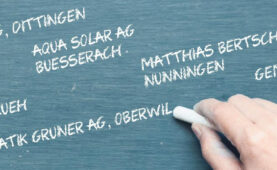 , OITTINGEN
AQUA SOLAR AG
BUESSERACH.
MATTHIAS BERTSCH
NUNNINGEN
GEN
UEH
ATIK GRUNER AG, OBERWIL